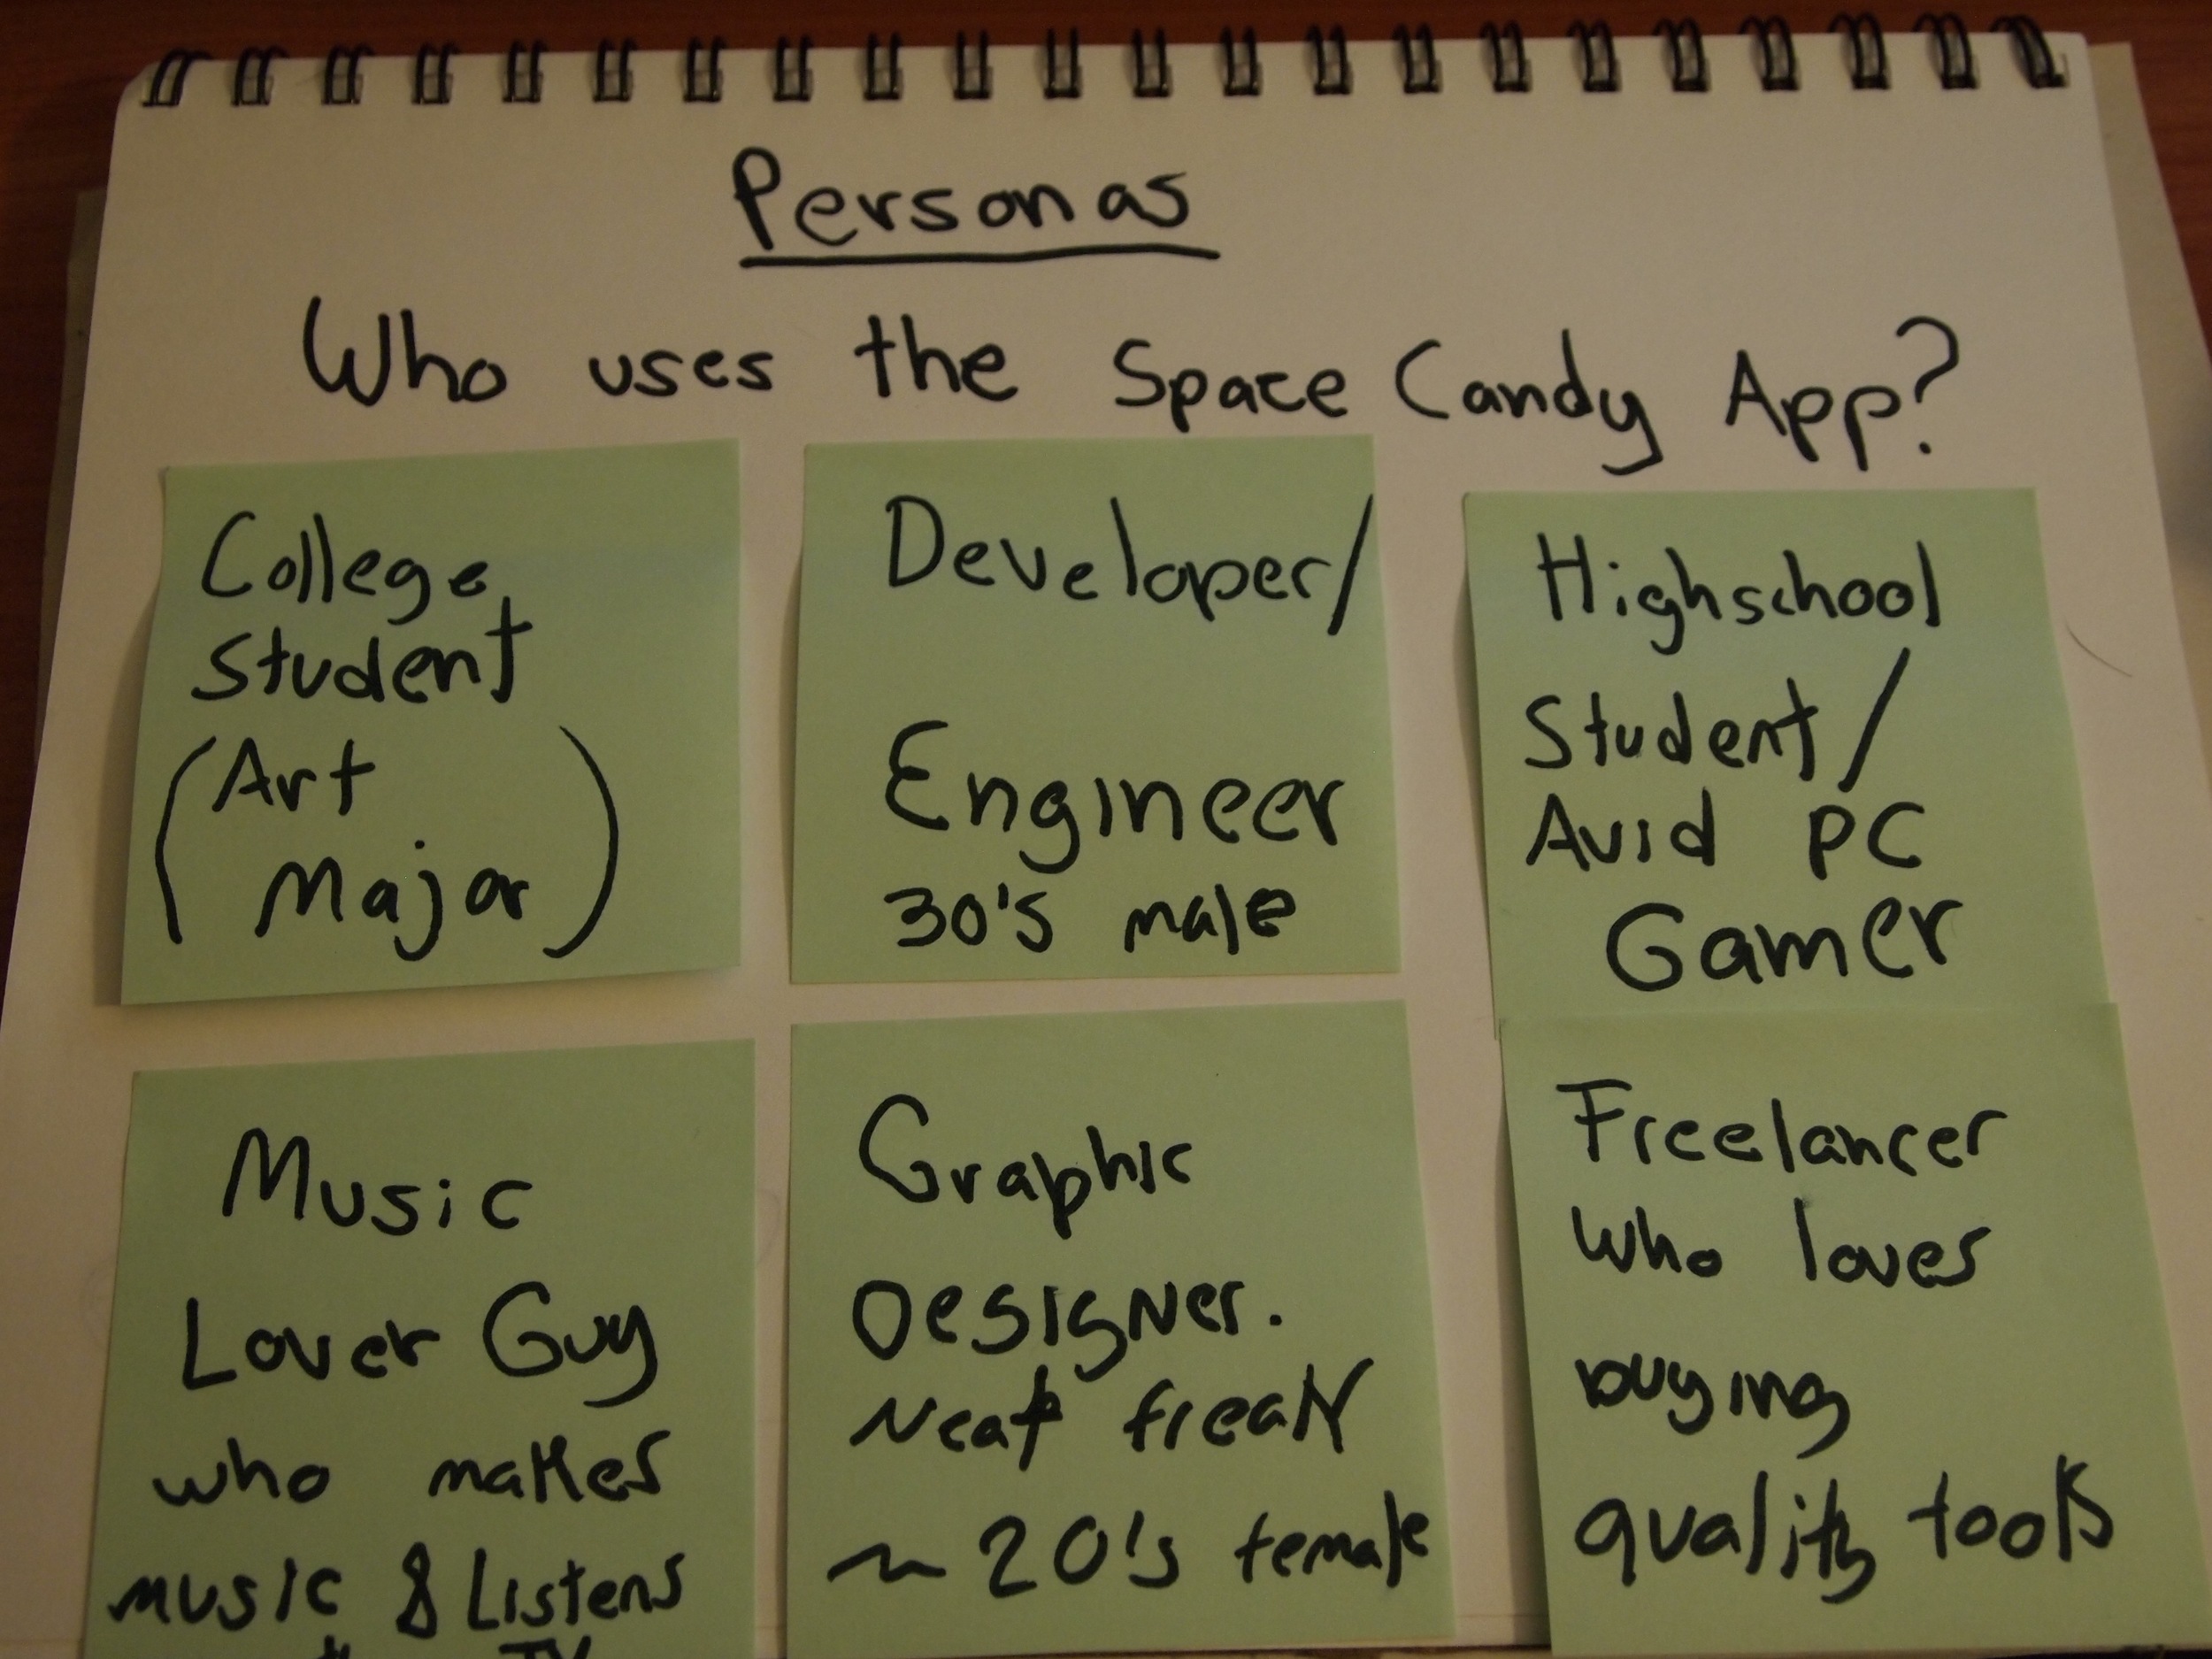 Personas
Who uses the Space Candy App?
College
Student
(Art
Major)
Developer/
Engineer
30's male
Highschool
Student/
Avid PC
Gamer
Music
Lover Guy
who makes
music & Listens
Graphic
Designer.
Neat freak
~ 20's female
Freelancer
Who loves
buying
quality tools